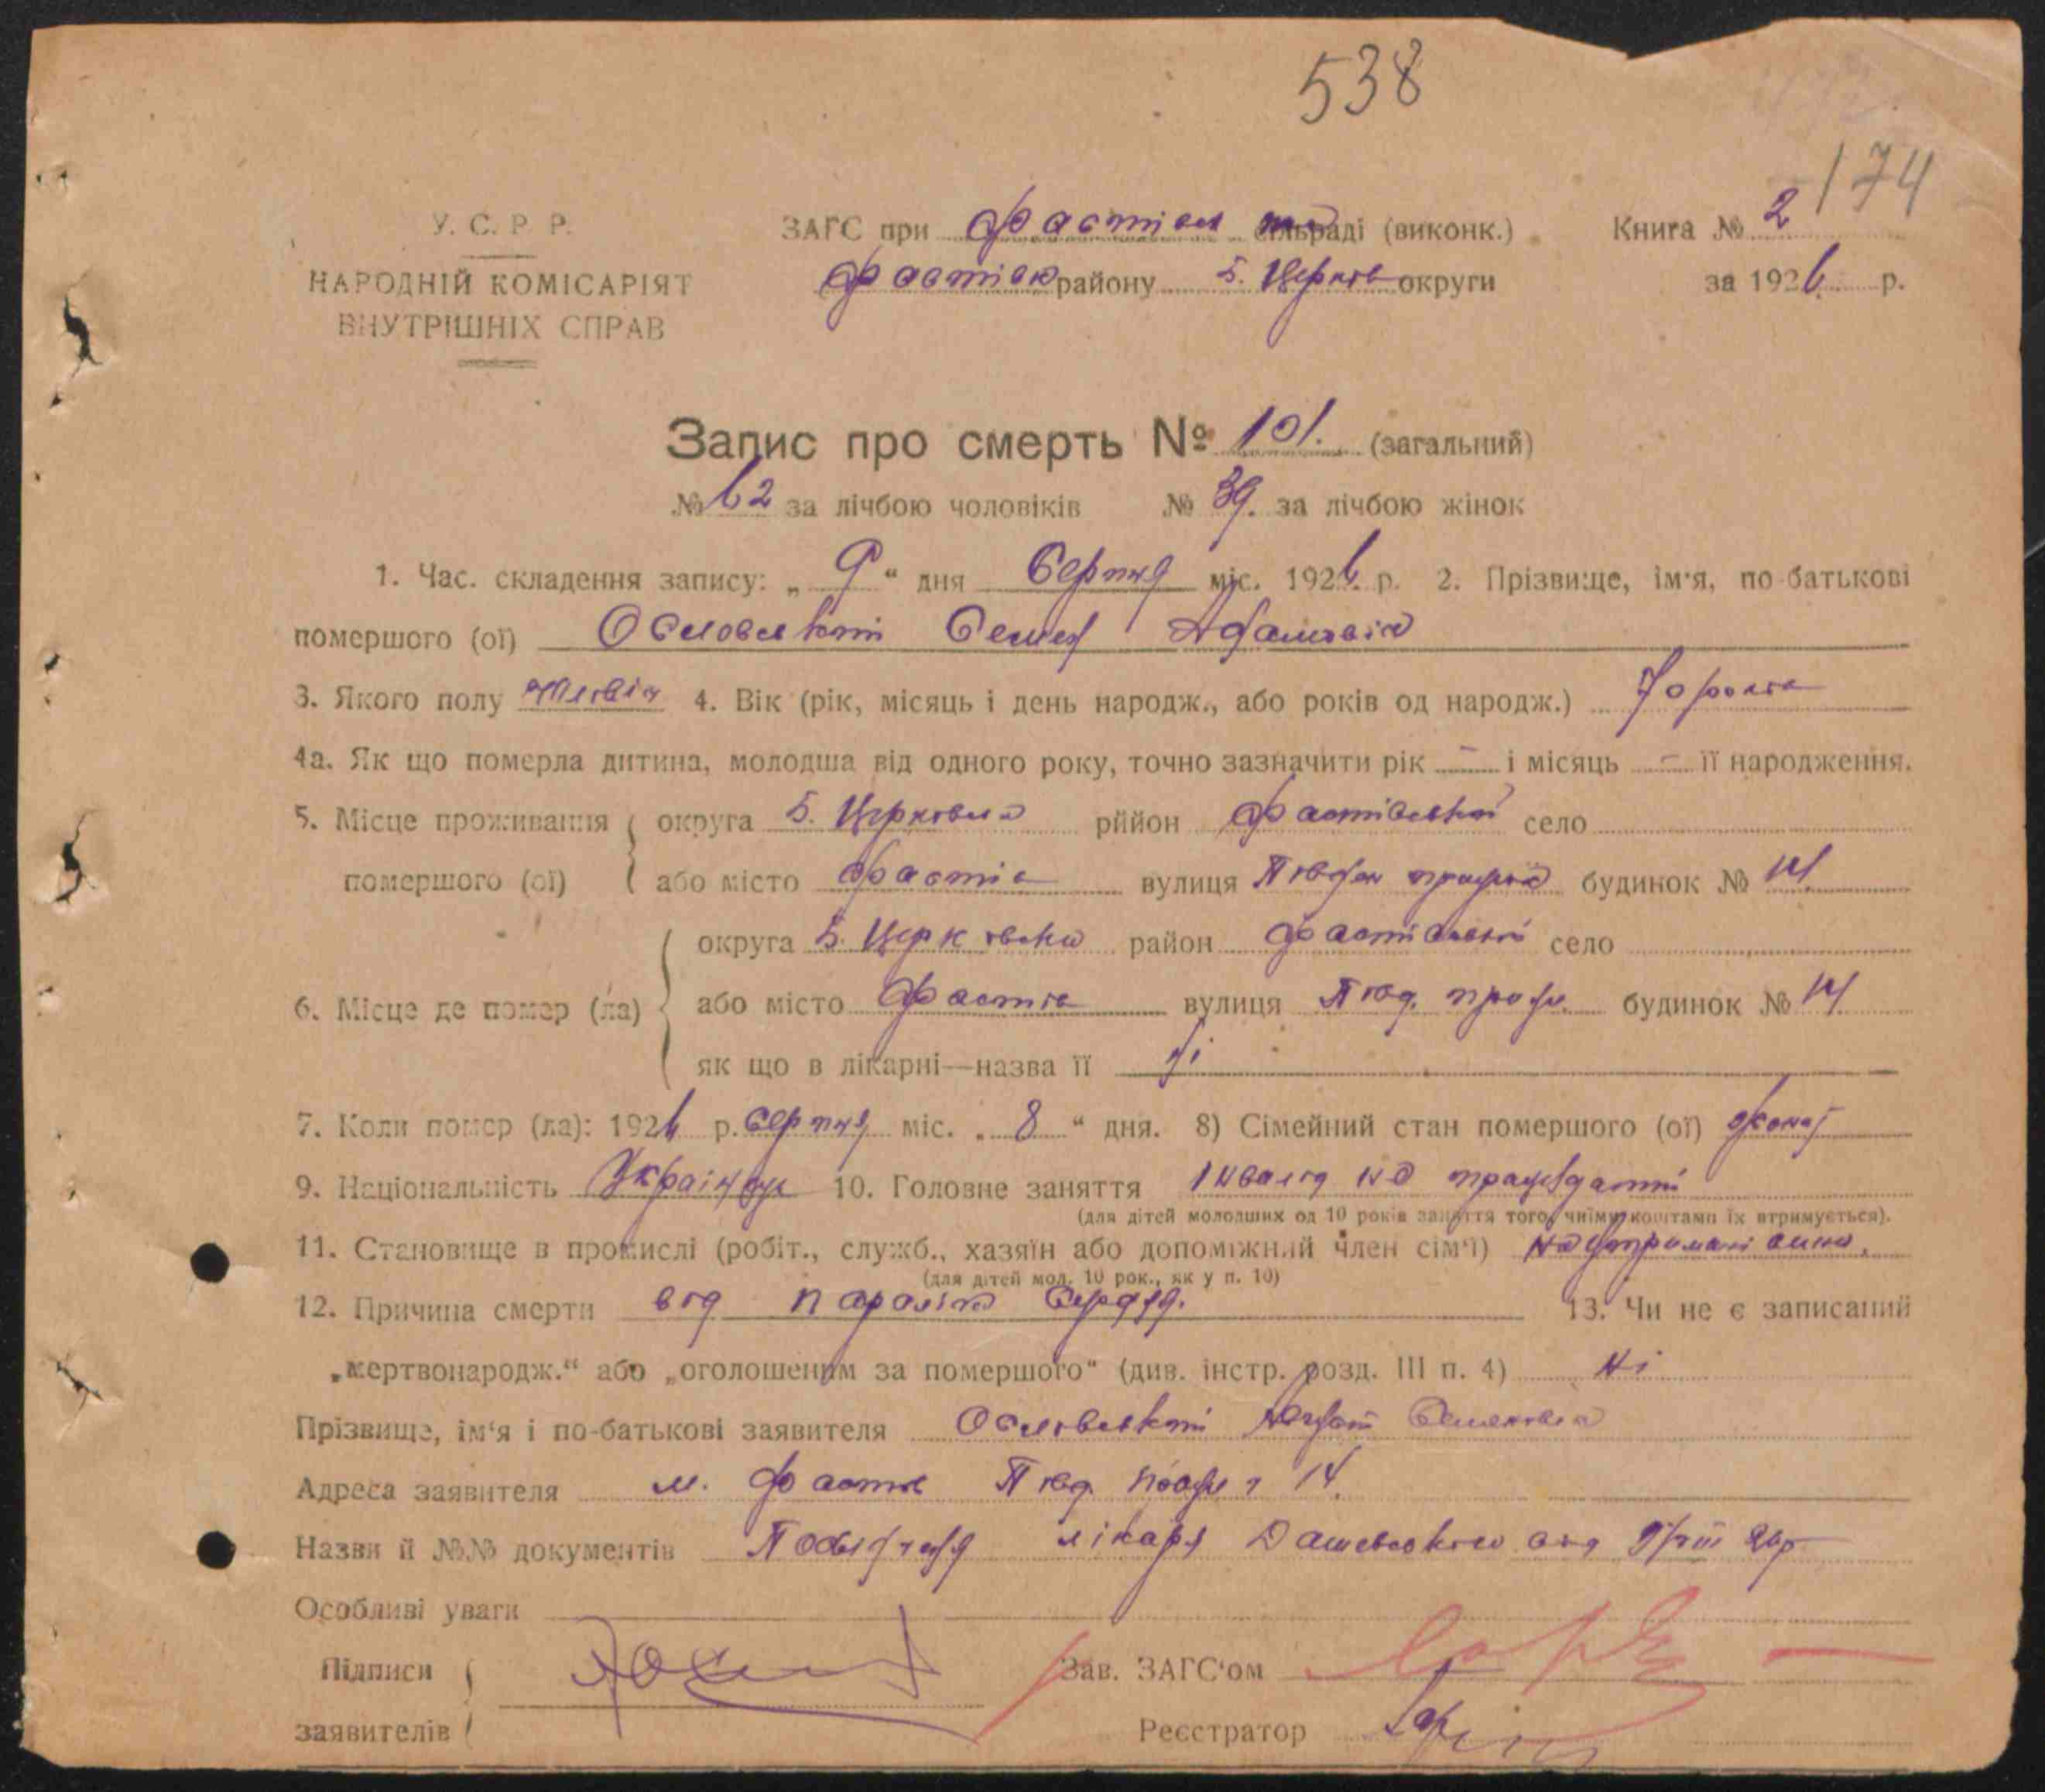 538
174
У. С. Р. Р.
ЗАГС при Фастівск сільраді (виконк.) Книга № 2
НАРОДНІЙ КОМІСАРІЯТ
Фастівск району Б. Церків округи за 1926 р.
ВНУТРІШНІХ СПРАВ
Запис про смерть № 101. (загальний)
№ 62 за лічбою чоловіків № 39. за лічбою жінок
1. Час. складення запису: „ 9 “ дня Серпня міс. 1926 р. 2. Прізвище, ім'я, по-батькові
помершого (ої) Осмовський Семен Адамовіч
3. Якого полу 4. Вік (рік, місяць і день народж., або років од народж.) 70 років
4а. Як що померла дитина, молодша від одного року, точно зазначити рік – і місяць – її народження.
5. Місце проживання округа Б. Церковська рййон Фастівський село
помершого (ої) або місто Фастів вулиця будинок № 14
округа Б. Церковська район Фастівський село
6. Місце де помер (ла) або місто Фастів вулиця будинок № 14
як що в лікарні—назва її Ні
7. Коли помер (ла): 1926 р. Серпня міс. „ 8 “ дня. 8) Сімейний стан помершого (ої)
9. Національність Українец 10. Головне заняття Інвалід
(для дітей молодших од 10 років заняття того, чиїми коштами їх втримується).
11. Становище в промислі (робіт., служб., хазяїн або допоміжний член сім'ї) На утримані сина.
(для дітей мол. 10 рок., як у п. 10)
12. Причина смерти від паралича серця. 13. Чи не є записаний
„мертвонародж.“ або „оголошеним за помершого“ (див. інстр. розд. III п. 4) Ні
Прізвище, ім'я і по-батькові заявителя Осмовський Семеновіч
Адреса заявителя м. Фастів 14.
Назви й №№ документів лікаря Дашевського від
Особливі уваги
Підписи Зав. ЗАГС'ом
заявителів Реєстратор